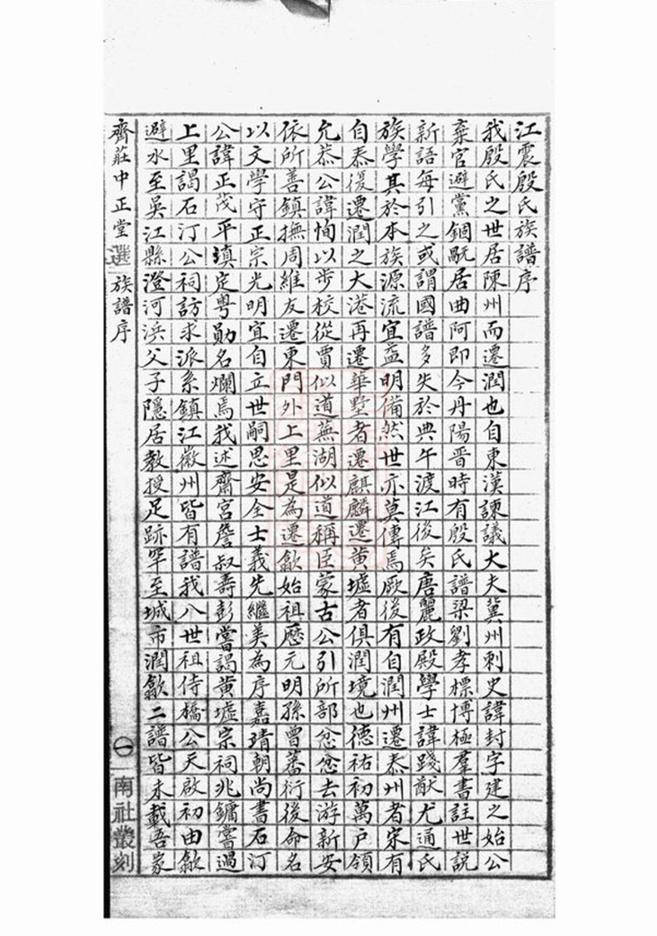 江震殷氏族譜序
我殷氏之世居陳州而遷潤也自東漢諫議大夫冀州刺史諱封字建之始公
棄官避黨錮駝居曲阿即今丹陽晋時有殷氏譜梁劉孝標博極羣書註世說
新語每引之或謂國譜多失於典午渡江後矣唐麗政殿學士諱踐猷尤通氏
族學其於本族源流宜益明備然世亦莫傳焉厥後有自潤州遷泰州者宋有
自泰復遷潤之大港再遷華墅者遷麒麟遷黃墟者俱潤境也德祐初萬户領
允恭公諱恂以步校從賈似道蕪湖似道稱臣蒙古公引所部忿忿去游新安
依所善鎮撫周維友遷東門外上里是為遷歙始祖歷元明孫曾蕃衍後命名
以文學守正宗光明宜自立世嗣思安全士義先繼美為序嘉靖朝尚書石汀
公諱正茂平填定粤勛名爛焉我述齋宮詹叔壽彭嘗謁黃墟宗祠兆鏞嘗過
上里謁石汀公祠訪求派系鎮江徽州皆有譜我八世祖侍橋公天啟初由歙
避水至吳江縣澄河浜父子隱居教授足跡罕至城市潤歙二譜皆未載吾家
齊莊中正堂選 族譜序
一
南社叢刻